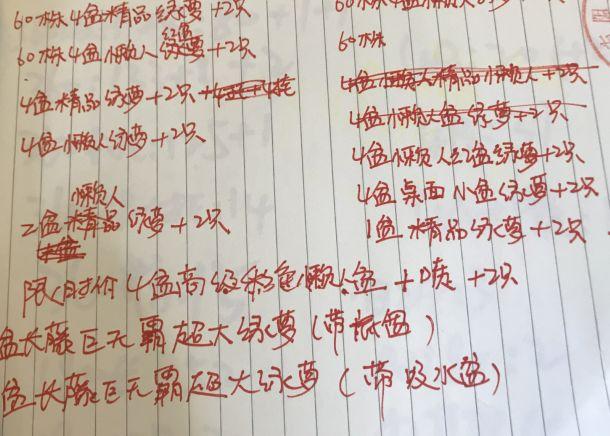 60株4盆精品绿萝+2只
60株4盆懒人红盆绿萝+2只
4盆精品绿萝+2只
4盆懒人绿萝+2只
2盆懒人绿萝+2只
60株4盆懒人
60株
4盆懒人精品懒人+2只
4盆懒人大盆绿萝+2只
4盆懒人红盆绿萝+2只
4盆桌面小盆绿萝+2只
1盆精品绿萝+2只
限时价4盆高级粉色懒人盆+喷+2只
盆长藤巨无霸超大绿萝(带根盆)
盆长藤巨无霸超大绿萝(带吸水盆)